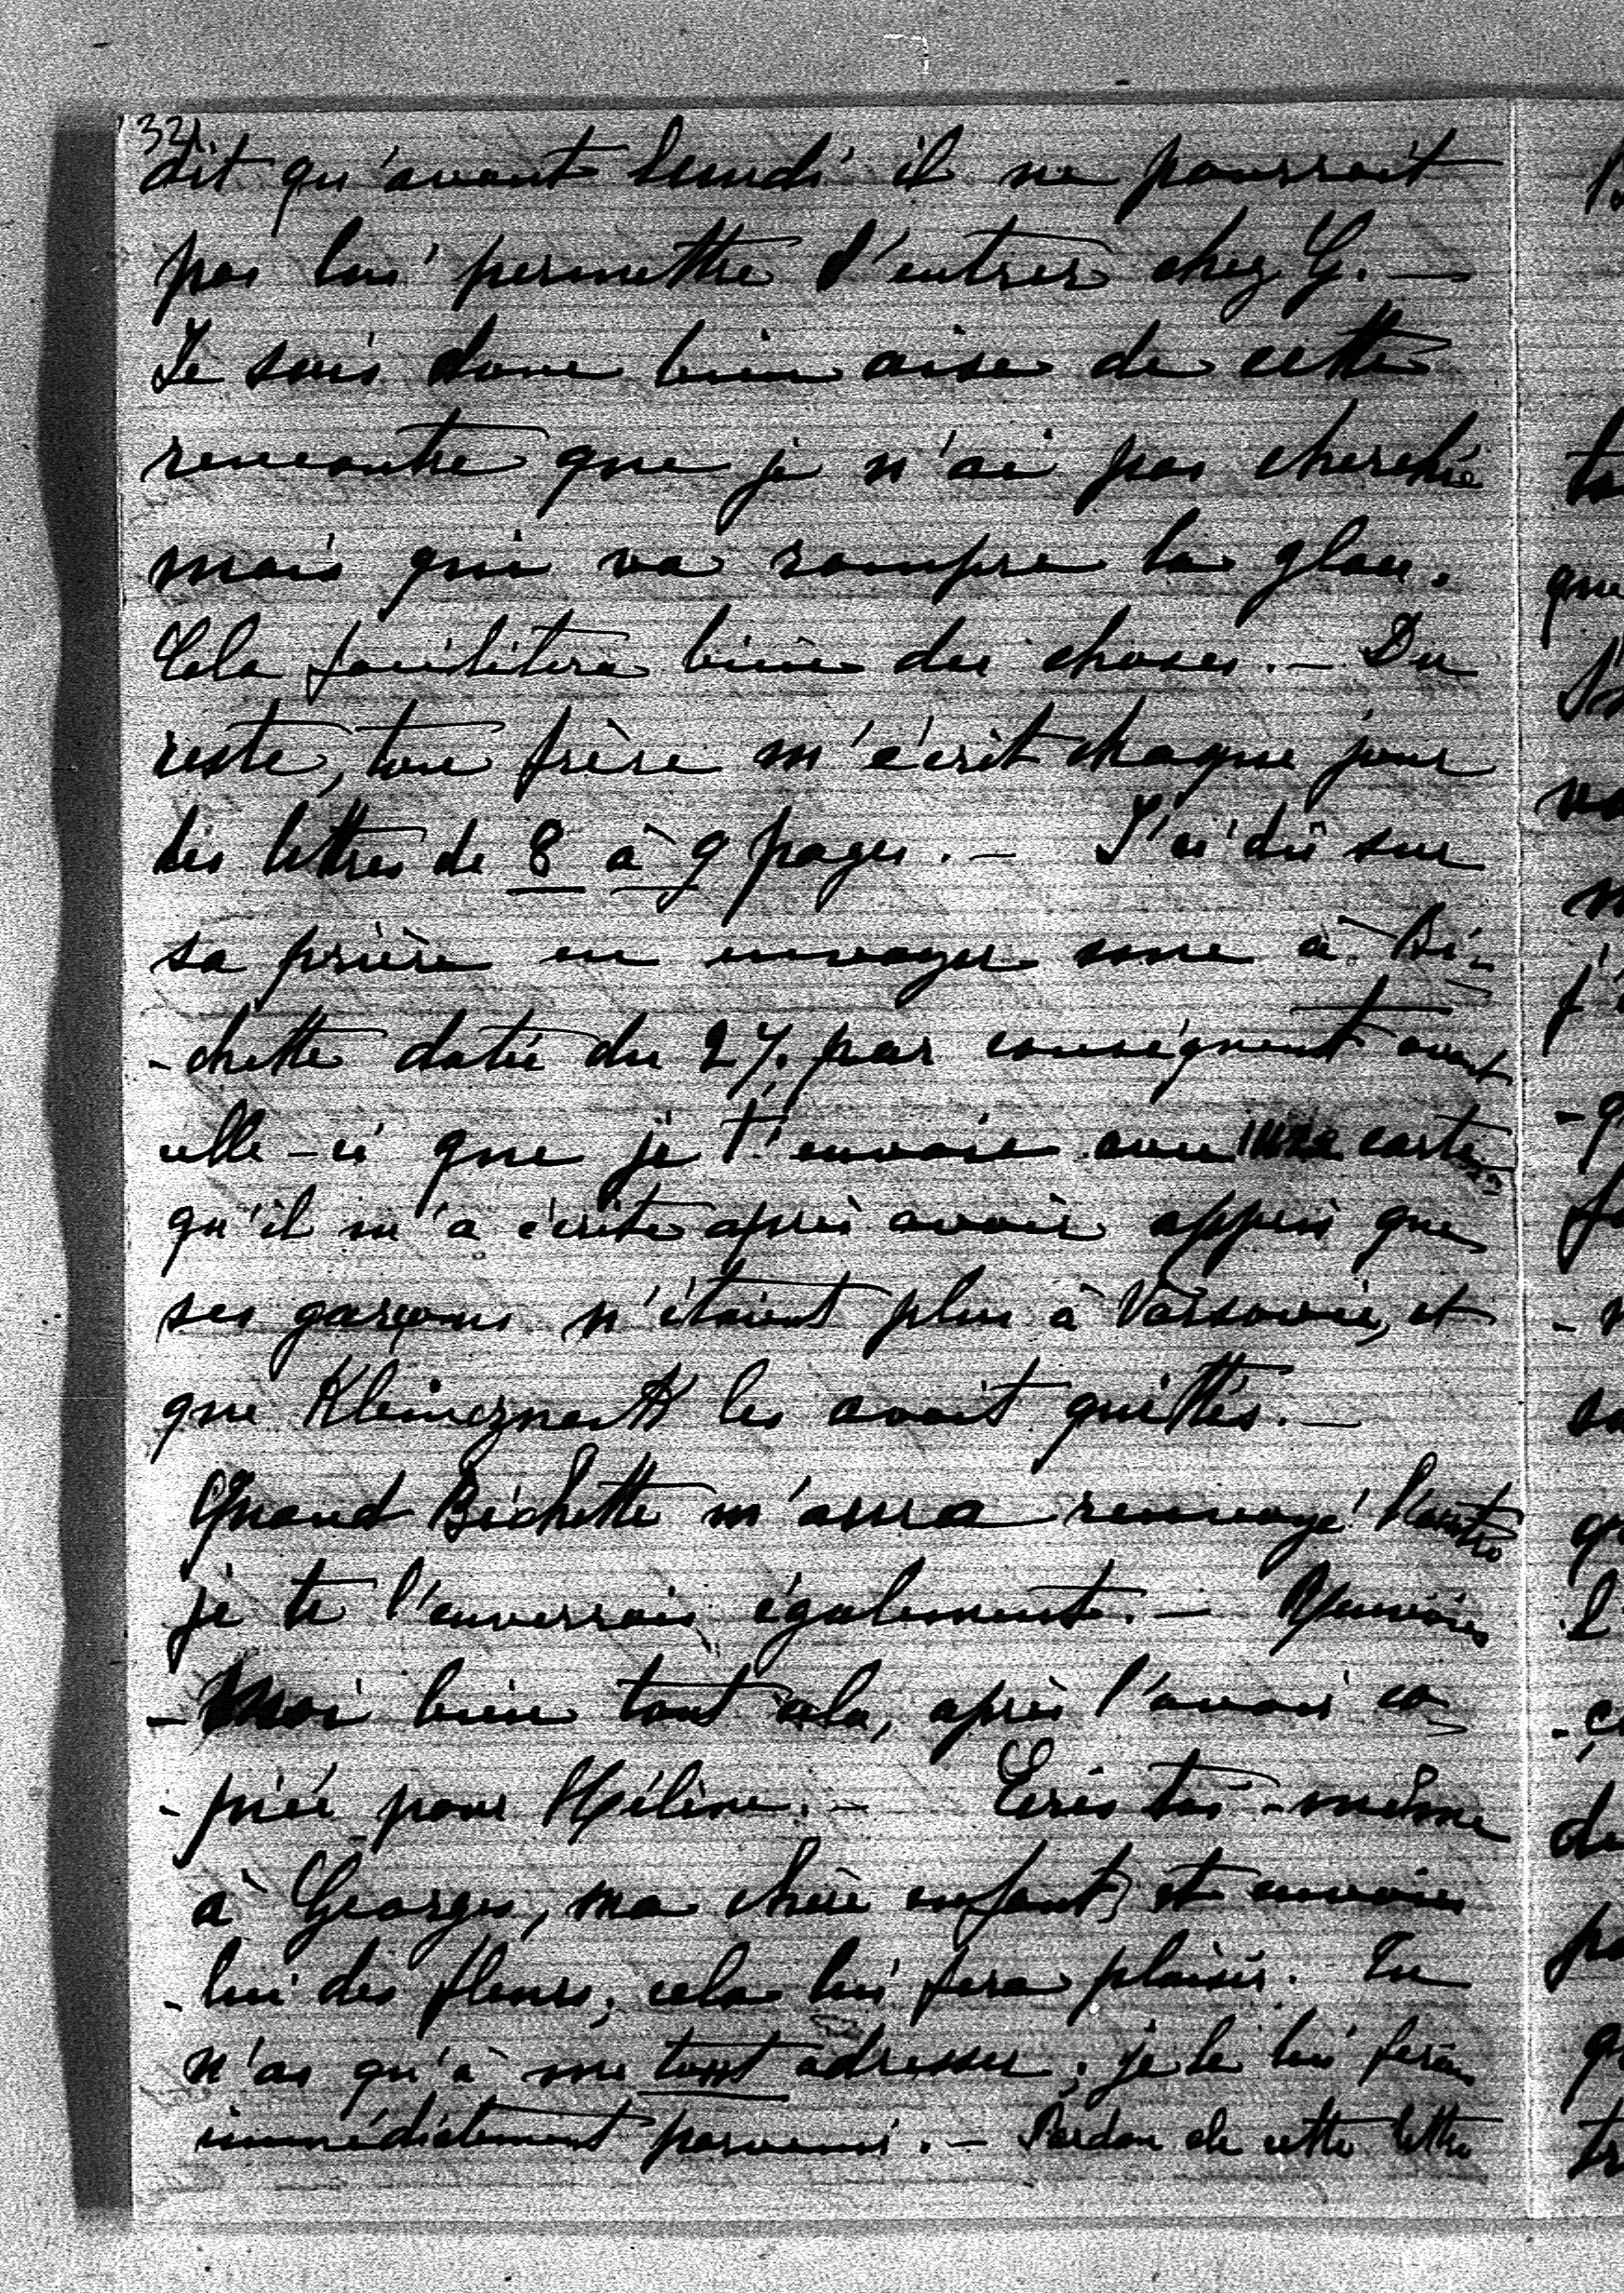 321
dit qu'avant lundi il ne pourrait
pas lui permettre d'entrer chez G. —
Je suis donc bien aise de cette
rencontre que je n'ai pas cherchée
mais qui va rompre la glace.
Cela facilitera bien des choses. — Du
reste, ton frère m'écrit chaque jour
des lettres de 8 à 9 pages. — J'ai dû sur
sa prière en envoyer une à Bi-
-chette datée du 27. par conséquent avant
celle-ci que je t'envoie avec une carte
qu'il m'a écrite après avoir appris que
ses garçons n'étaient plus à Varsovie, et
que les avait quittés. —
Quand Bichette m'aura renvoyé l'autre
je te l'enverrai également. — Renvoies
-moi bien tout cela, après l'avoir co-
-piée pour Hélène. — Ecris toi-même
à Georges, ma chère enfant, et envoies
-lui des fleurs, cela lui fera plaisir. Tu
n'as qu'à me tout adresser, je le lui ferai
immédiatement parvenir. — Pardon de cette lettre